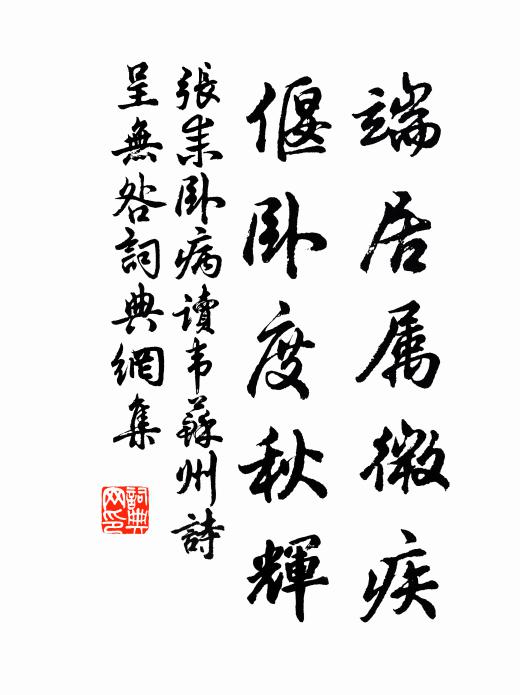 端居属微疾
偃卧度秋輝
張耒卧病讀韦蘇州詩
呈無咎詞典網集
詞典
网印